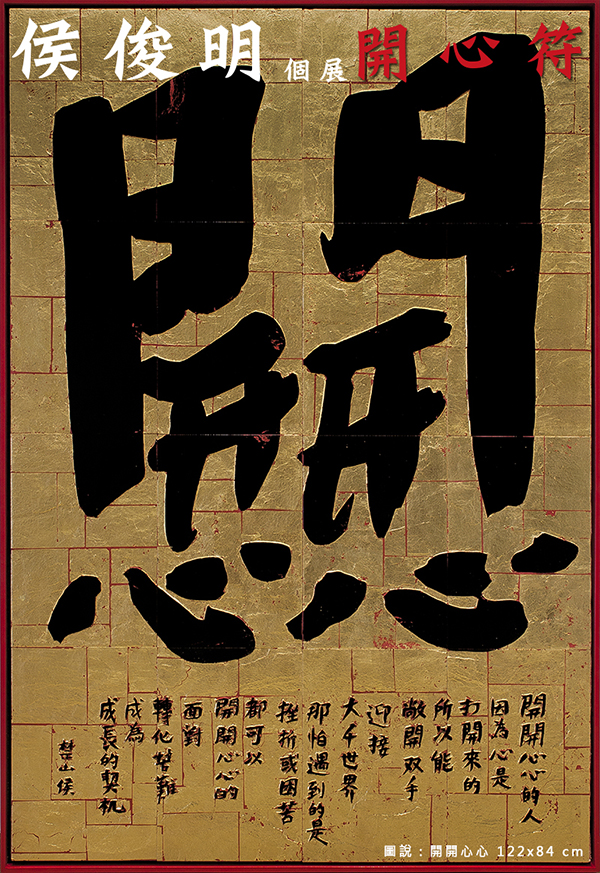 侯俊明 個展 開心符
開開心心
開開心心的人
因為心是
打開來的
所以能
敞開双手
迎接
大千世界
那怕遇到的是
挫折或困苦
都可以
開開心心的
面對
轉化難
成為
成長的契机
侯
圖說：開開心心 122x84 cm